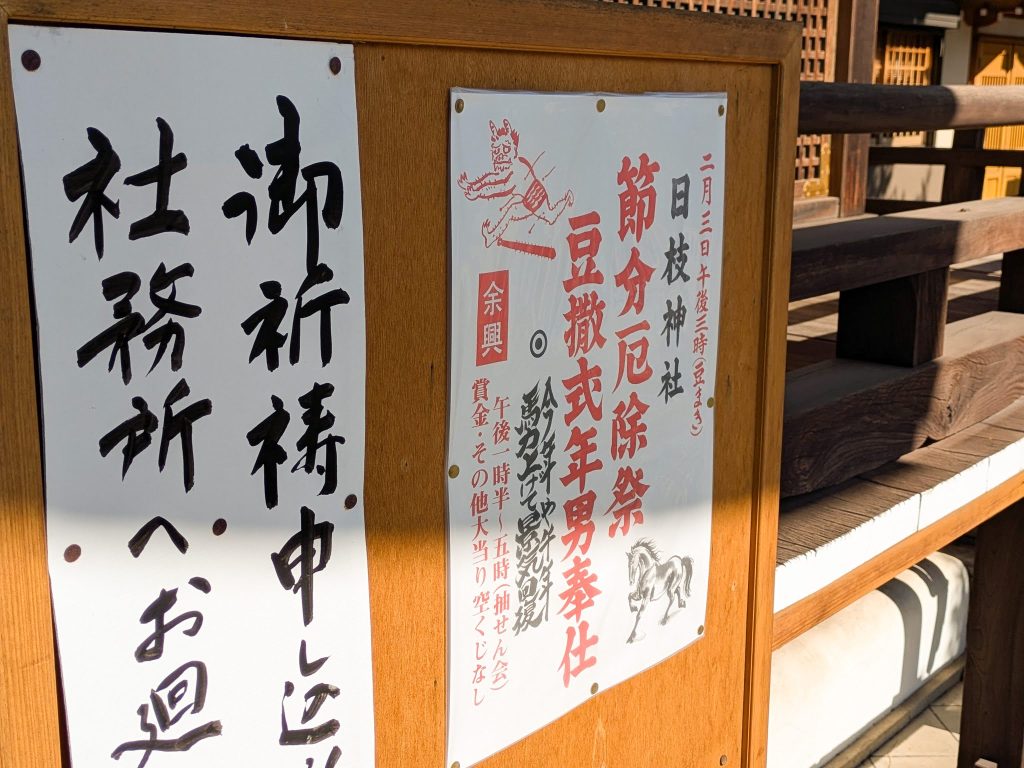 二月三日午後三時(豆まき)
日枝神社
節分厄除祭
豆撒式年男奉仕
◎
馬力上げて景気回復
余興
午後一時半～五時(抽せん会)
賞金・その他大当り空くじなし
御祈祷申し込
社務所へお廻